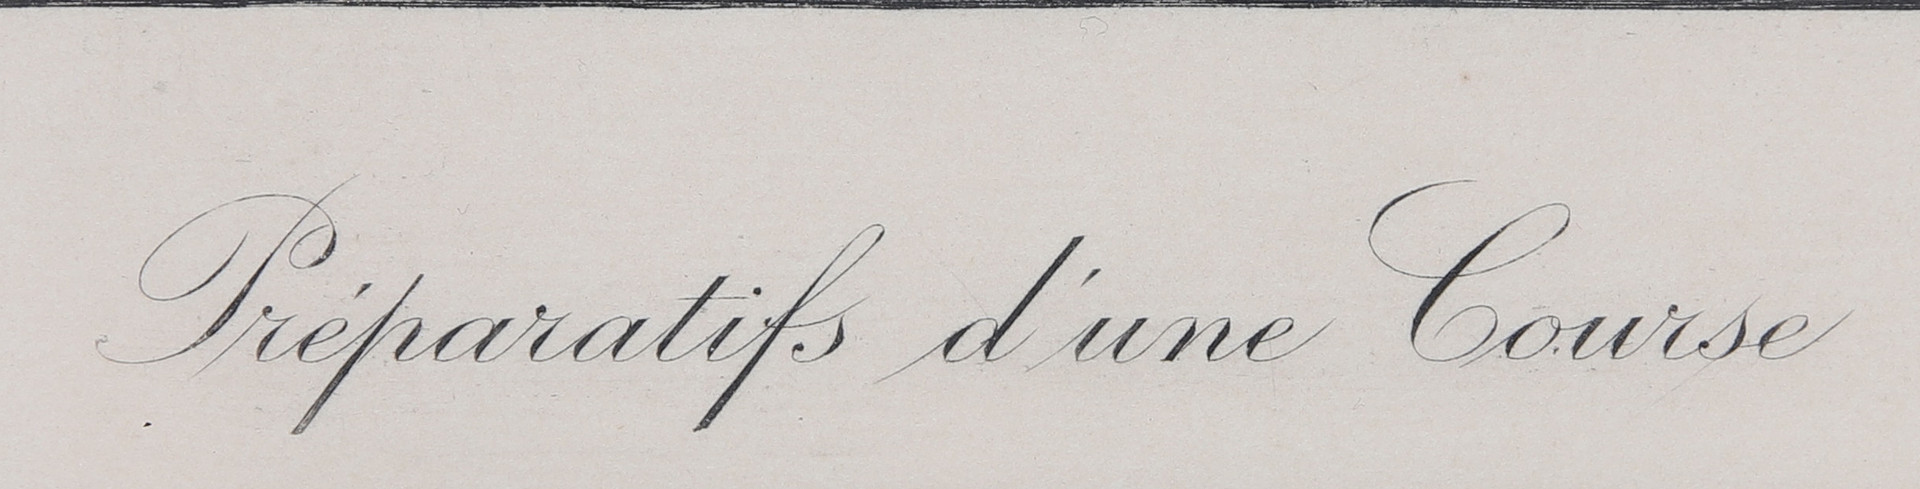 Préparatifs d'une Course